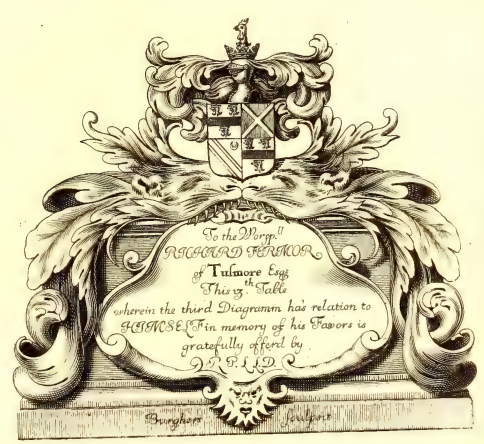 To the Worpp.ll
RICHARD FERMOR
of Tusmore Esqꝫ
This 13.th Table
wherein the third Diagramm has relation to
HIMSELF in memory of his Favors is
gratefully offerd by
R. P. L.L.D.
Burghers sculpsit